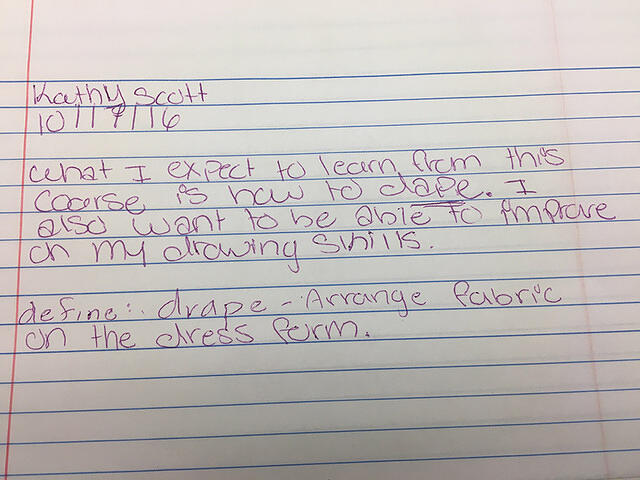 Kathy Scott
10/17/16
What I expect to learn from this
coarse is how to dape. I
also want to be able to improve
on my drawing skills.
define: drape - Arrange fabric
on the dress form.